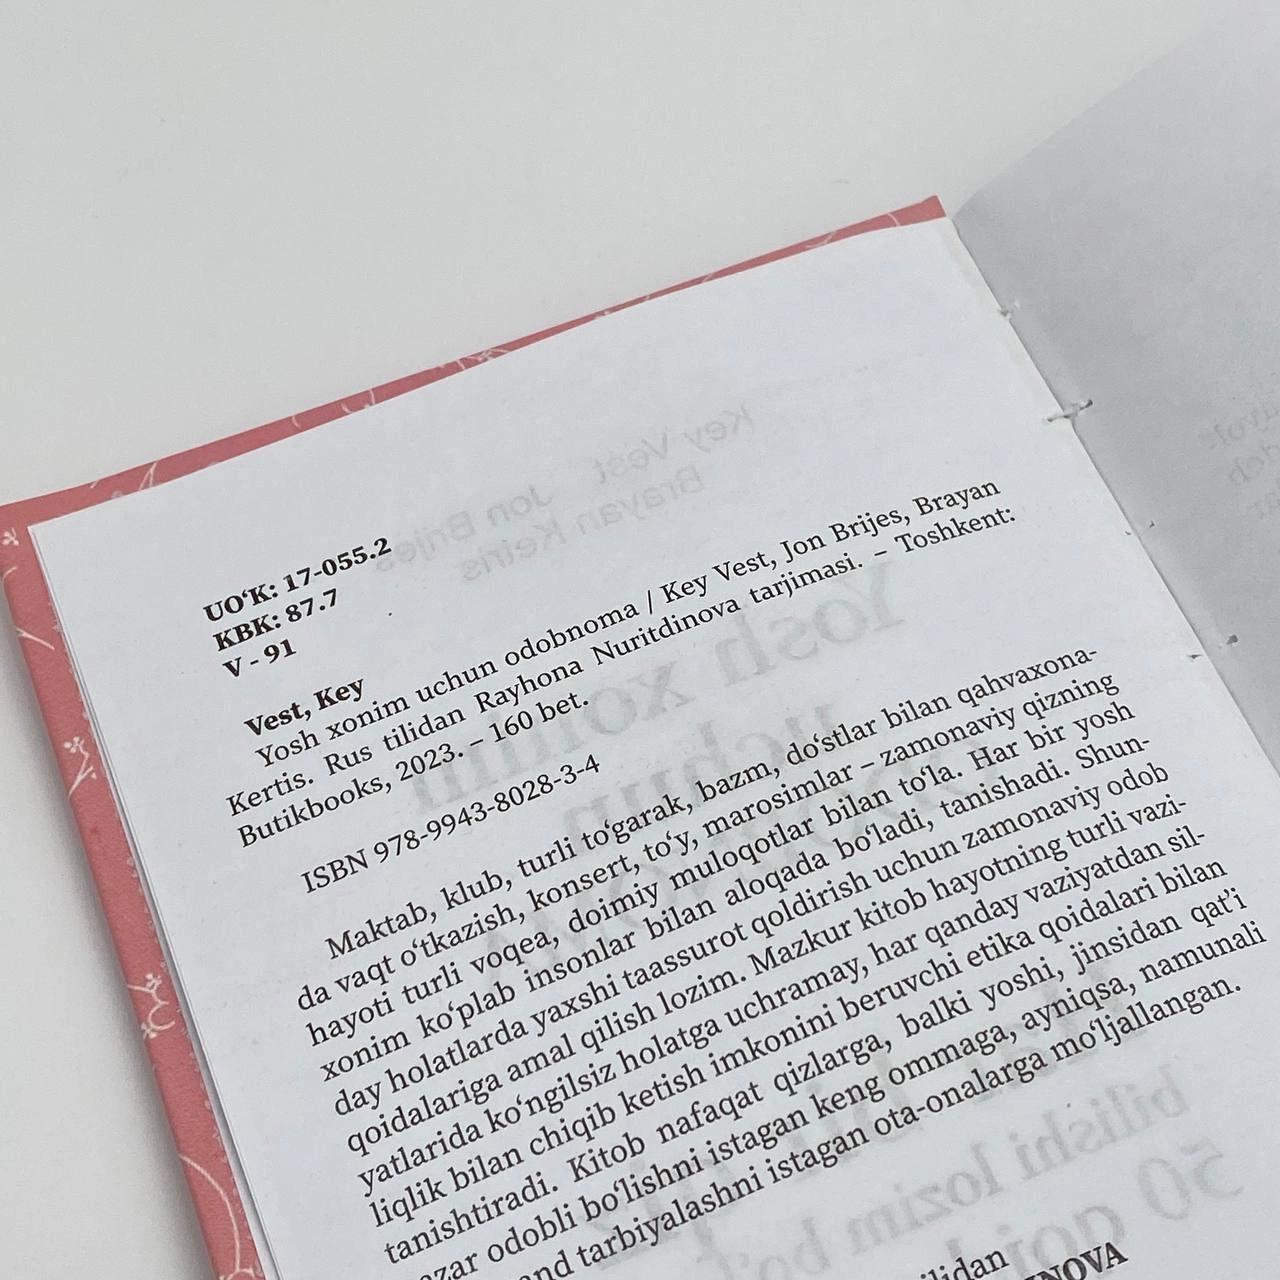 UO‘K: 17-055.2
KBK: 87.7
V - 91
Vest, Key
Yosh xonim uchun odobnoma / Key Vest, Jon Brijes, Brayan
Kertis. Rus tilidan Rayhona Nuritdinova tarjimasi. – Toshkent:
Butikbooks, 2023. – 160 bet.
ISBN 978-9943-8028-3-4
Maktab, klub, turli to‘garak, bazm, do‘stlar bilan qahvaxona-
da vaqt o‘tkazish, konsert, to‘y, marosimlar – zamonaviy qizning
hayoti turli voqea, doimiy muloqotlar bilan to‘la. Har bir yosh
xonim ko‘plab insonlar bilan aloqada bo‘ladi, tanishadi. Shun-
day holatlarda yaxshi taassurot qoldirish uchun zamonaviy odob
qoidalariga amal qilish lozim. Mazkur kitob hayotning turli vazi-
yatlarida ko‘ngilsiz holatga uchramay, har qanday vaziyatdan sil-
liqlik bilan chiqib ketish imkonini beruvchi etika qoidalari bilan
tanishtiradi. Kitob nafaqat qizlarga, balki yoshi, jinsidan qat’i
azar odobli bo‘lishni istagan keng ommaga, ayniqsa, namunali
nd tarbiyalashni istagan ota-onalarga mo‘ljallangan.
ilidan
INOVA